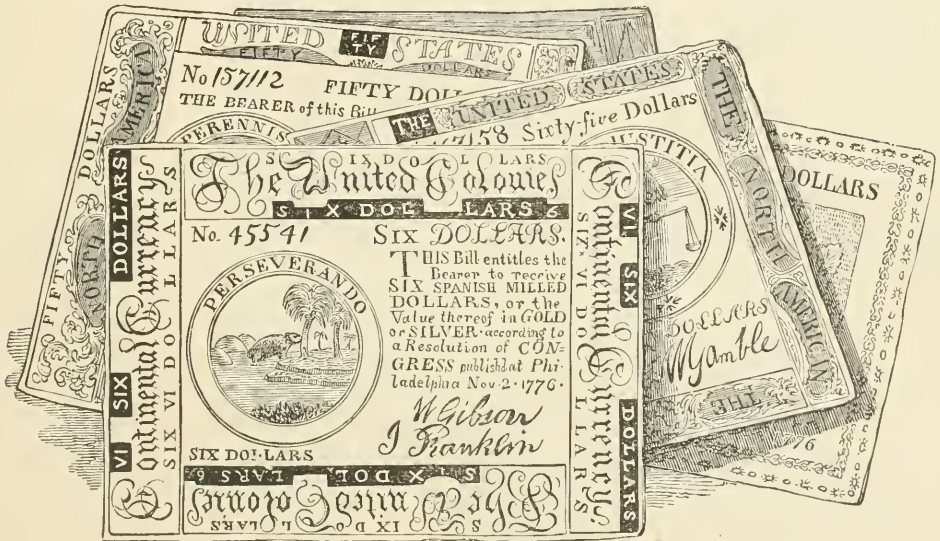 UNITED FIF TY STATES
FIFTY DOLLARS
No 157112 FIFTY DOLL
THE BEARER of this Bill
PERENNIS
FIFTY DOLLARS
NORTH AMERICA
THE UNITED STATES
7158 Sixty-five Dollars
JUSTITIA
DOLLARS
WGamble
THE NORTH AMERICAN
THE
DOLLARS
76
SIX DOLLARS
The United Colonies
SIX DOLLARS 6
No. 45541 SIX DOLLARS.
THIS Bill entitles the
Bearer to receive
SIX SPANISH MILLED
DOLLARS, or the
Value thereof in GOLD
or SILVER according to
a Resolution of CON=
GRESS published at Phi-
ladelphia Nov. 2. 1776.
WGibson
J Franklin
PERSEVERANDO
SIX DOLLARS
VI SIX DOLLARS
Continental Currency
SIX VI DOLLARS
VI SIX DOLLARS
Continental Currency
SIX VI DOLLARS
SIX DOLLARS 6
The United Colonies
SIX DOLLARS